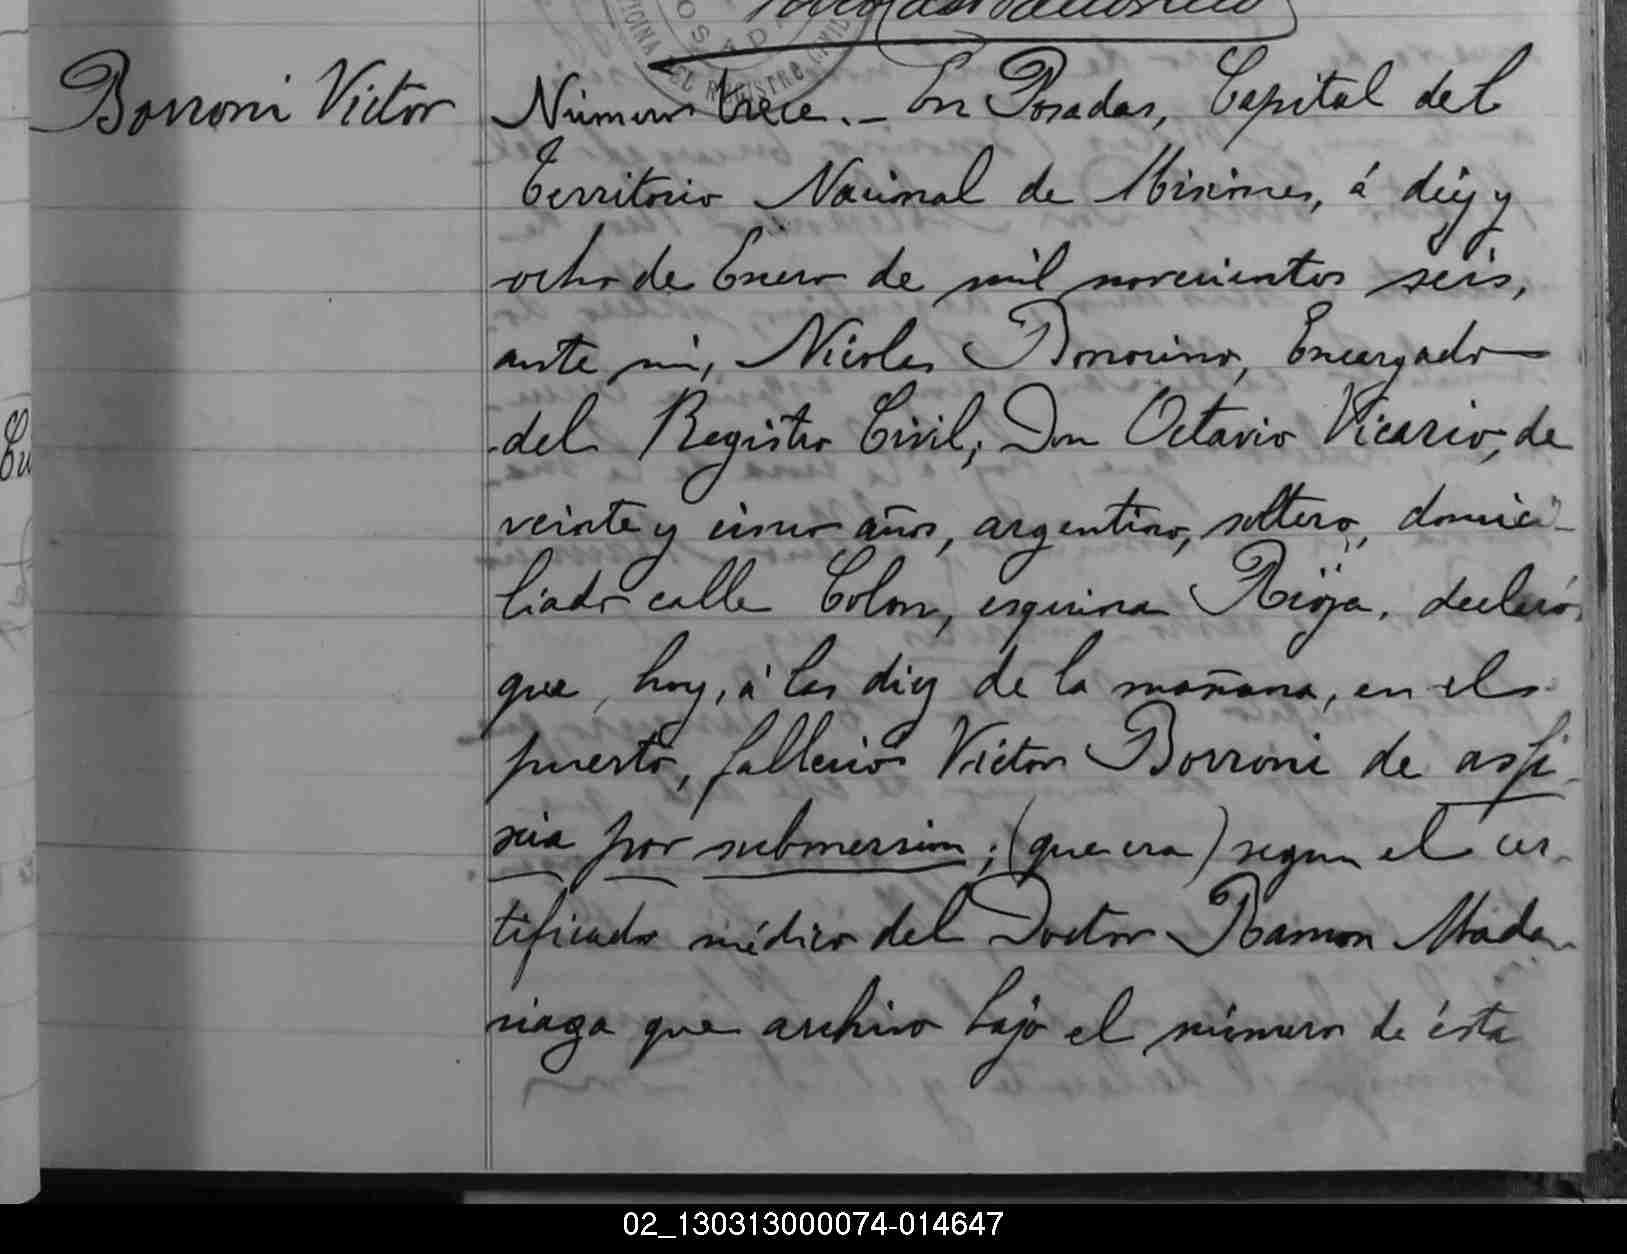 OFICINA DEL REGISTRO CIVIL
POSADAS
Borroni Victor
Número trece._ En Posadas, Capital del
Territorio Nacional de Misiones, á diez y
ocho de Enero de mil novecientos seis,
ante mi, Nicolas Bonorino, Encargado
del Registro Civil, Don Octavio Vicario, de
veinte y cinco años, argentino, soltero, domici-
liado calle Colon, esquina Rioja, declaró
que, hoy, á las diez de la mañana, en el
puerto, falleció Victor Borroni de asfi-
xia por submersion; (que era) segun el cer-
tificado médico del Doctor Ramon Mada-
riaga que archivo bajo el número de ésta
02_130313000074-014647